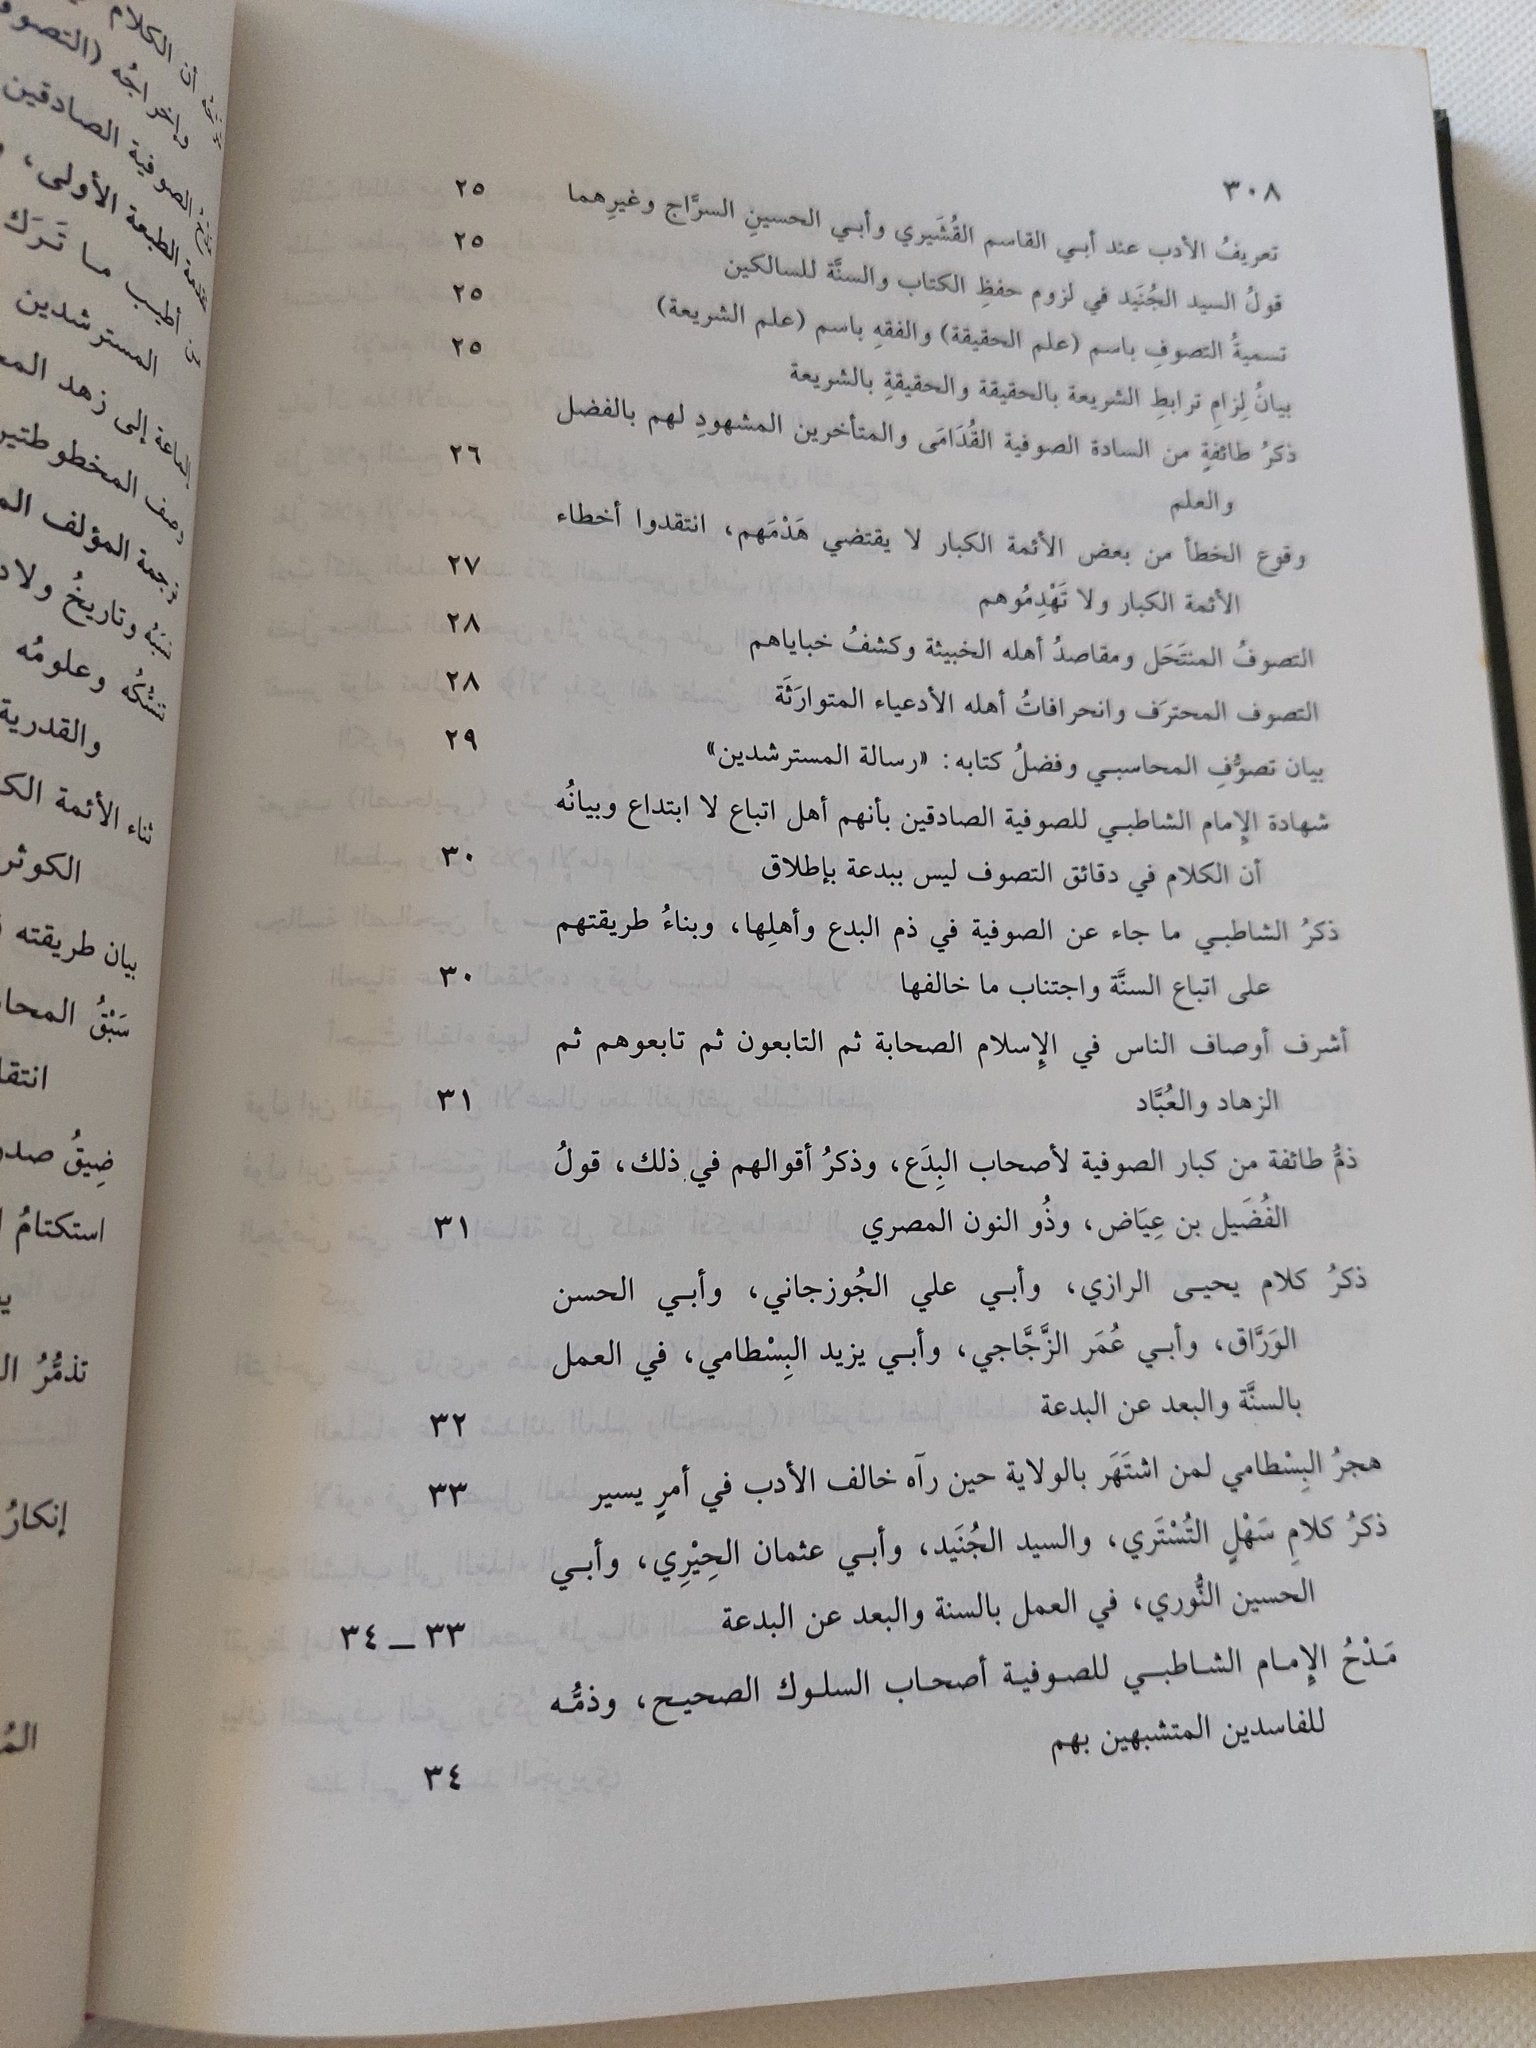 ٣٠٨
تعريفُ الأدب عند أبي القاسم القُشَيري وأبي الحسين السرَّاج وغيرِهما ٢٥
قولُ السيد الجُنَيد في لزوم حفظِ الكتاب والسنَّة للسالكين ٢٥
تسميةُ التصوفِ باسم (علم الحقيقة) والفقهِ باسم (علم الشريعة) ٢٥
بيانُ لِزامِ ترابطِ الشريعة بالحقيقة والحقيقةِ بالشريعة ٢٥
ذكرُ طائفةٍ من السادة الصوفية القُدَامَى والمتأخرين المشهودِ لهم بالفضل
والعلم ٢٦
وقوع الخطأ من بعض الأئمة الكبار لا يقتضي هَدْمَهم، انتقدوا أخطاء
الأئمة الكبار ولا تَهْدِمُوهم ٢٧
التصوفُ المنتَحَل ومقاصدُ أهله الخبيثة وكشفُ خباياهم ٢٨
التصوف المحترَف وانحرافاتُ أهله الأدعياء المتوارَثَة ٢٨
بيان تصوُّفِ المحاسبي وفضلُ كتابه: «رسالة المسترشدين» ٢٩
شهادة الإِمام الشاطبي للصوفية الصادقين بأنهم أهل اتباع لا ابتداع وبيانُه
أن الكلام في دقائق التصوف ليس ببدعة بإطلاق ٣٠
ذكرُ الشاطبي ما جاء عن الصوفية في ذم البدع وأهلِها، وبناءُ طريقتهم
على اتباع السنَّة واجتناب ما خالفها ٣٠
أشرف أوصاف الناس في الإِسلام الصحابة ثم التابعون ثم تابعوهم ثم
الزهاد والعُبَّاد ٣١
ذمُّ طائفة من كبار الصوفية لأصحاب البِدَع، وذكرُ أقوالهم في ذلك، قولُ
الفُضَيل بن عِيَاض، وذُو النون المصري ٣١
ذكرُ كلام يحيى الرازي، وأبي علي الجُوزجاني، وأبي الحسن
الوَرَّاق، وأبي عُمَر الزَّجَّاجي، وأبي يزيد البِسْطامي، في العمل
بالسنَّة والبعد عن البدعة ٣٢
هجرُ البِسْطامي لمن اشتَهَر بالولاية حين رآه خالف الأدب في أمرٍ يسير ٣٣
ذكرُ كلامِ سَهْلٍ التُسْتَري، والسيد الجُنَيد، وأبي عثمان الحِيْرِي، وأبي
الحسين النُّوري، في العمل بالسنة والبعد عن البدعة ٣٣ ــ ٣٤
مَدْحُ الإِمام الشاطبي للصوفية أصحاب السلوك الصحيح، وذمُّه
للفاسدين المتشبهين بهم ٣٤